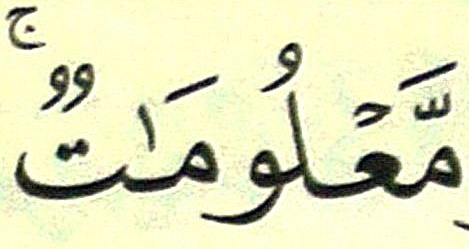 مَّعْلُومَٰتٌۭ ۚ